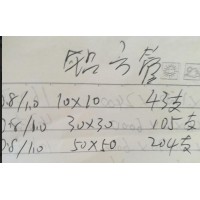 铝方管
0.8/1.0 10×10 43支
0.8/1.0 30×30 105支
0.8/1.0 50×50 204支